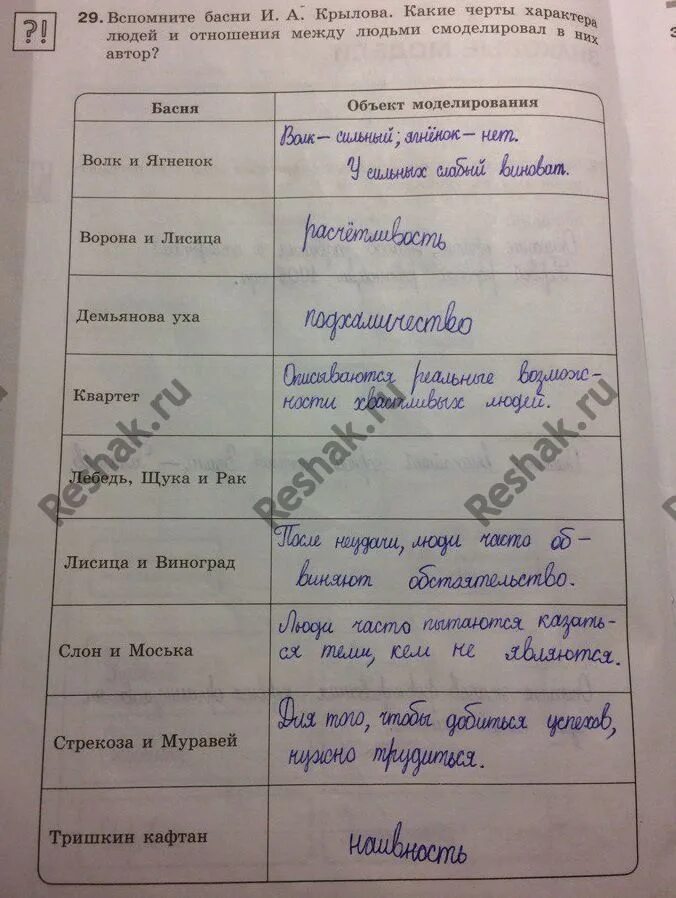 ?!
29. Вспомните басни И. А. Крылова. Какие черты характера
людей и отношения между людьми смоделировал в них
автор?
Басня
Объект моделирования
Волк и Ягненок
Волк – сильный; ягнёнок – нет.
У сильных слабый виноват.
Ворона и Лисица
расчётливость
Демьянова уха
подхалимство
Квартет
Описываются реальные возмож-
ности хвастливых людей.
Лебедь, Щука и Рак
Лисица и Виноград
После неудачи, люди часто об-
виняют обстоятельство.
Слон и Моська
Люди часто пытаются казать-
ся теми, кем не являются.
Стрекоза и Муравей
Для того, чтобы добиться успехов,
нужно трудиться.
Тришкин кафтан
наивность
Reshak.ru
Reshak.ru
Reshak.ru